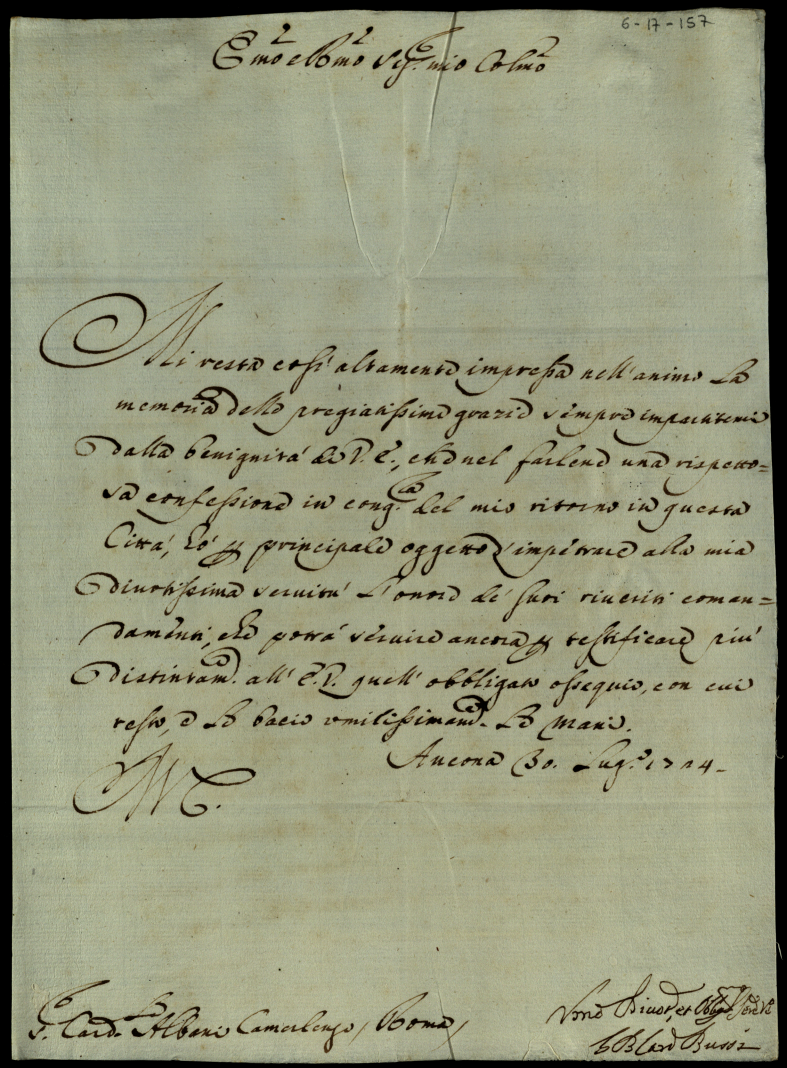 6-17-157
Emo e Rmo Sig.r mio Colmo
Mi resta così altamente impressa nell'animo la
memoria delle pregiatissime grazie sempre impartitemi
dalla benignità di V. E., che nel farlene una rispetto=
sa confessione in cong.ra del mio ritorno in questa
Città, hò per principale oggetto d'impetrare alla mia
divotissima servitù l'onore de' suoi riveriti coman=
damenti, che potrà servire ancora per testificare più
distintam.e all' E. V. quell' obbligato ossequio, con cui
resto, e le bacio umilissimam.e le mani.
Ancona 30. Lug.o 1724.
S. Card. Albani Camerlengo / Roma /
Divot. et Obbl
Card Bussi